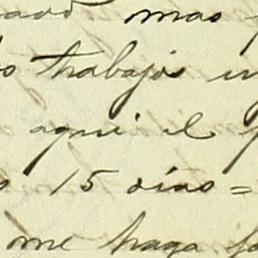 mas
trabajos
aqui el
15 dias=
me haga